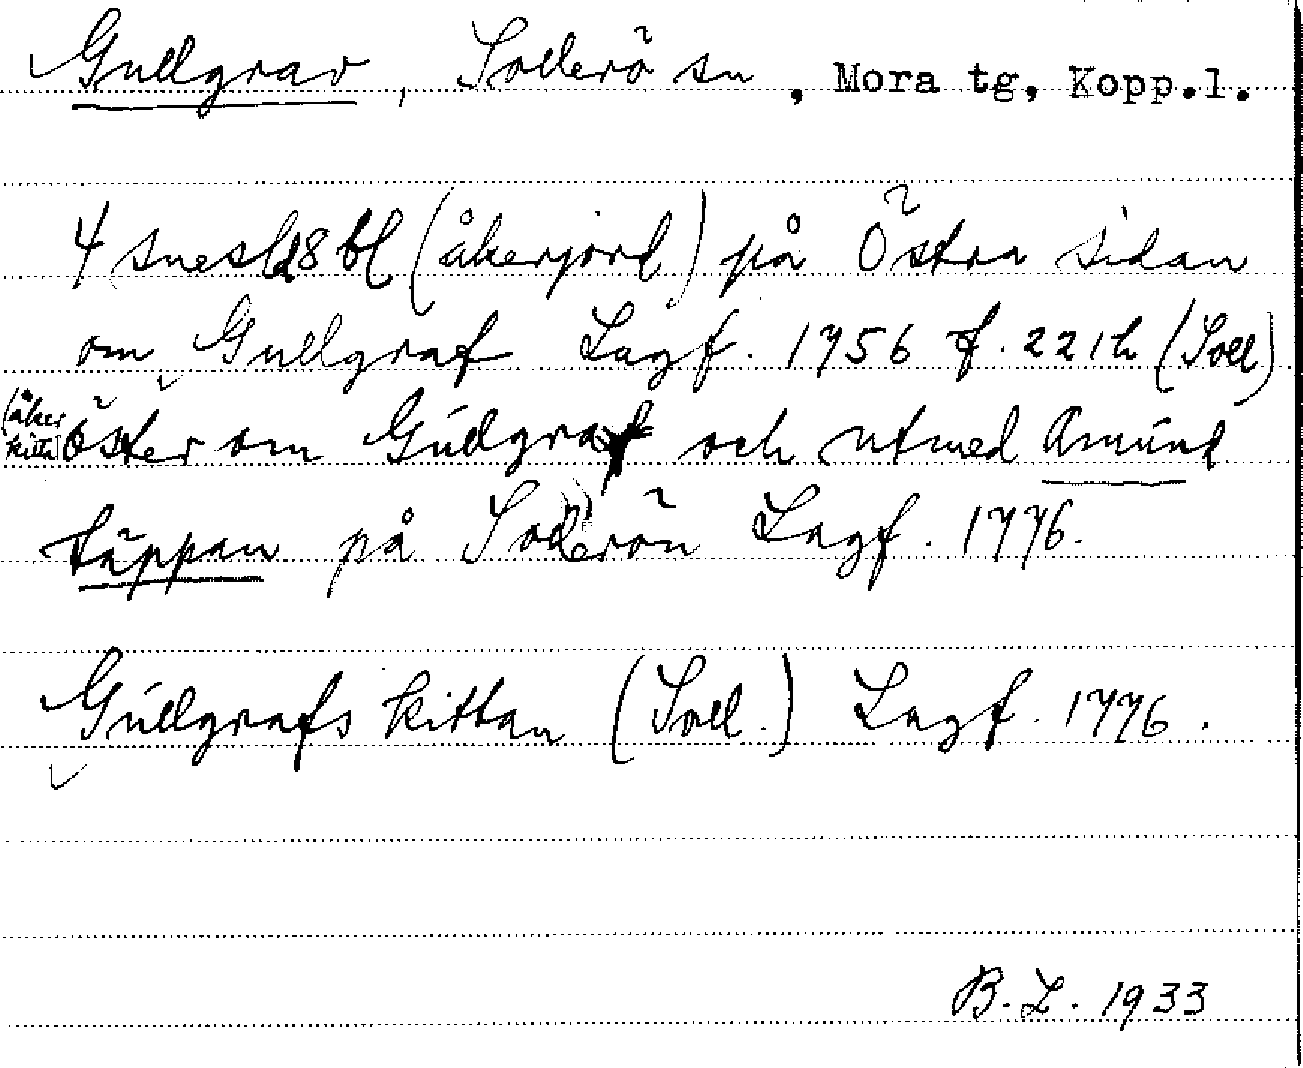 Gullgrav, Sollerö sn, Mora tg, Kopp.l.
4 snesld 8 bl (åkerjord) på Östra sidan
om Gullgraf Lagf. 1756 f. 221 h (Soll)
(åker kitta) öster om Gullgraf och utmed Amund
täppan på Sollerön Lagf. 1776.
Gullgrafs kittan (Soll.) Lagf. 1776.
B. L. 1933